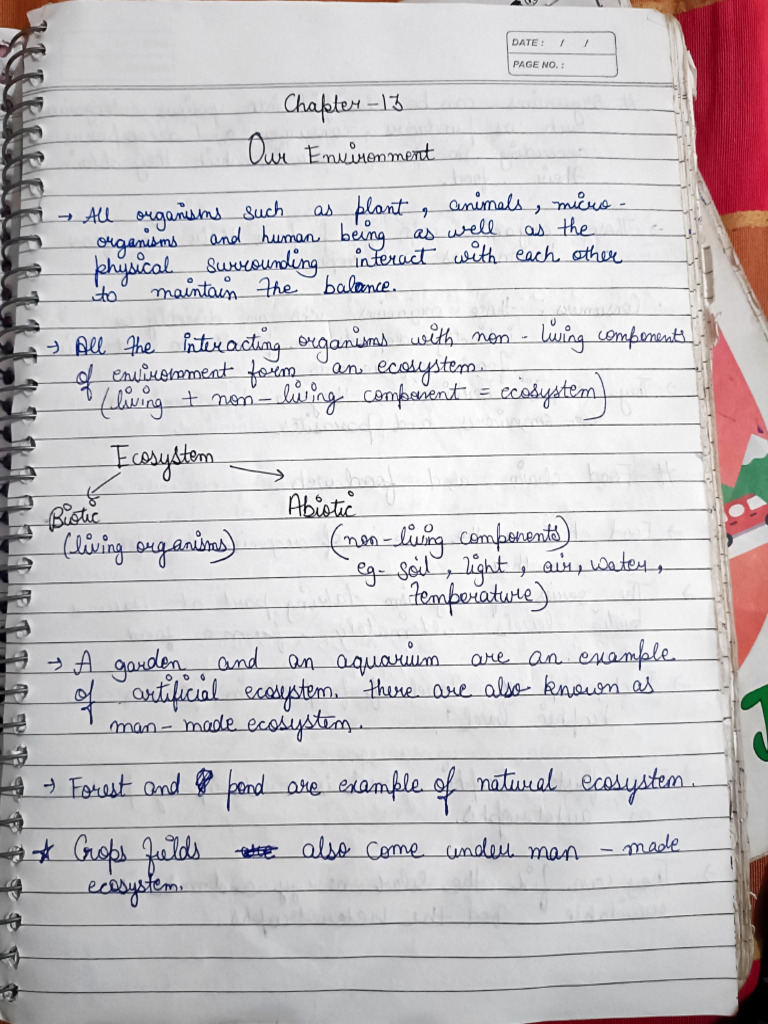 DATE: / /
PAGE NO.:
Chapter-13
Our Environment
→ All organisms such as plant, animals, micro-
organisms and human being as well as the
physical surrounding interact with each other
to maintain the balance.
→ All the interacting organisms with non-living components
of environment form an ecosystem.
(living + non-living component = ecosystem)
Ecosystem
Biotic Abiotic
(living organisms) (non-living components)
eg- soil, light, air, water,
temperature)
→ A garden and an aquarium are an example
of artificial ecosystem. there are also known as
man-made ecosystem.
→ Forest and pond are example of natural ecosystem.
★ Crops fields also come under man-made
ecosystem.